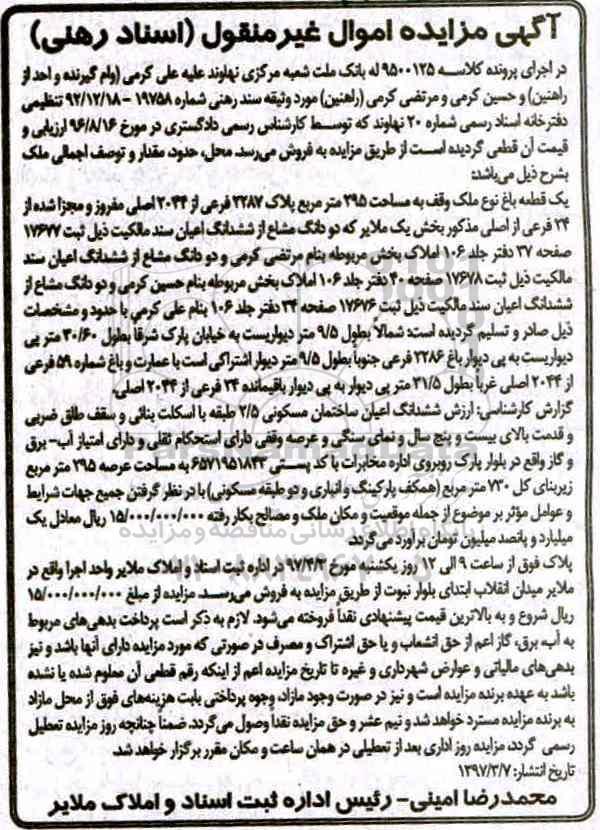 آگهی مزایده اموال غیرمنقول (اسناد رهنی)
در اجرای پرونده کلاسه ۹۵۰۰۱۲۵ له بانک ملت شعبه مرکزی نهاوند علیه علی کرمی (وام گیرنده و احد از
راهنین) و حسین کرمی و مرتضی کرمی (راهنین) مورد وثیقه سند رهنی شماره ۱۹۷۵۸ - ۹۲/۱۲/۱۸ تنظیمی
دفترخانه اسناد رسمی شماره ۲۰ نهاوند که توسط کارشناس رسمی دادگستری در مورخ ۹۶/۸/۱۶ ارزیابی و
قیمت آن قطعی گردیده است از طریق مزایده به فروش می‌رسد. محل، حدود، مقدار و توصیف اجمالی ملک
بشرح ذیل می‌باشد:
یک قطعه باغ نوع ملک وقف به مساحت ۲۹۵ متر مربع پلاک ۲۲۸۷ فرعی از ۲۰۴۴ اصلی مفروز و مجزا شده از
۲۴ فرعی از اصلی مذکور بخش یک ملایر که دو دانگ مشاع از ششدانگ اعیان سند مالکیت ذیل ثبت ۱۷۶۷۷
صفحه ۳۷ دفتر جلد ۱۰۶ املاک بخش مربوطه بنام مرتضی کرمی و دو دانگ مشاع از ششدانگ اعیان سند
مالکیت ذیل ثبت ۱۷۶۷۸ صفحه ۴۰ دفتر جلد ۱۰۶ املاک بخش مربوطه بنام حسین کرمی و دو دانگ مشاع از
ششدانگ اعیان سند مالکیت ذیل ثبت ۱۷۶۷۶ صفحه ۳۴ دفتر جلد ۱۰۶ بنام علی کرمی با حدود و مشخصات
ذیل صادر و تسلیم گردیده است: شمالاً بطول ۹/۵ متر دیواریست به خیابان پارک شرقاً بطول ۳۰/۶۰ متر پی
دیواریست به پی دیوار باغ ۲۲۸۶ فرعی جنوباً بطول ۹/۵ متر دیوار اشتراکی است با عمارت و باغ شماره ۵۹ فرعی
از ۲۰۴۴ اصلی غرباً بطول ۳۱/۵ متر پی دیوار به پی دیوار باقیمانده ۲۴ فرعی از ۲۰۴۴ اصلی.
گزارش کارشناسی: ارزش ششدانگ اعیان ساختمان مسکونی ۲/۵ طبقه با اسکلت بنائی و سقف طاق ضربی
و قدمت بالای بیست و پنج سال و نمای سنگی و عرصه وقفی دارای استحکام ثقلی و دارای امتیاز آب- برق
و گاز واقع در بلوار پارک روبروی اداره مخابرات با کد پستی ۶۵۷۱۹۵۱۸۴۳ به مساحت عرصه ۲۹۵ متر مربع
زیربنای کل ۷۳۰ متر مربع (همکف پارکینگ و انباری و دو طبقه مسکونی) با در نظر گرفتن جمیع جهات شرایط
و عوامل مؤثر بر موضوع از جمله موقعیت و مکان ملک و مصالح بکار رفته ۱۵/۰۰۰/۰۰۰/۰۰۰ ریال معادل یک
میلیارد و پانصد میلیون تومان برآورد می‌گردد.
پلاک فوق از ساعت ۹ الی ۱۲ روز یکشنبه مورخ ۹۷/۴/۳ در اداره ثبت اسناد و املاک ملایر واحد اجرا واقع در
ملایر میدان انقلاب ابتدای بلوار نبوت از طریق مزایده به فروش می‌رسد. مزایده از مبلغ ۱۵/۰۰۰/۰۰۰/۰۰۰
ریال شروع و به بالاترین قیمت پیشنهادی نقداً فروخته می‌شود. لازم به ذکر است پرداخت بدهی‌های مربوط
به آب، برق، گاز اعم از حق انشعاب و یا حق اشتراک و مصرف در صورتی که مورد مزایده دارای آنها باشد و نیز
بدهی‌های مالیاتی و عوارض شهرداری و غیره تا تاریخ مزایده اعم از اینکه رقم قطعی آن معلوم شده یا نشده
باشد به عهده برنده مزایده است و نیز در صورت وجود مازاد، وجوه پرداختی بابت هزینه‌های فوق از محل مازاد
به برنده مزایده مسترد خواهد شد و نیم عشر و حق مزایده نقداً وصول می‌گردد. ضمناً چنانچه روز مزایده تعطیل
رسمی گردد، مزایده روز اداری بعد از تعطیلی در همان ساعت و مکان مقرر برگزار خواهد شد.
تاریخ انتشار: ۱۳۹۷/۳/۷
محمدرضا امینی- رئیس اداره ثبت اسناد و املاک ملایر